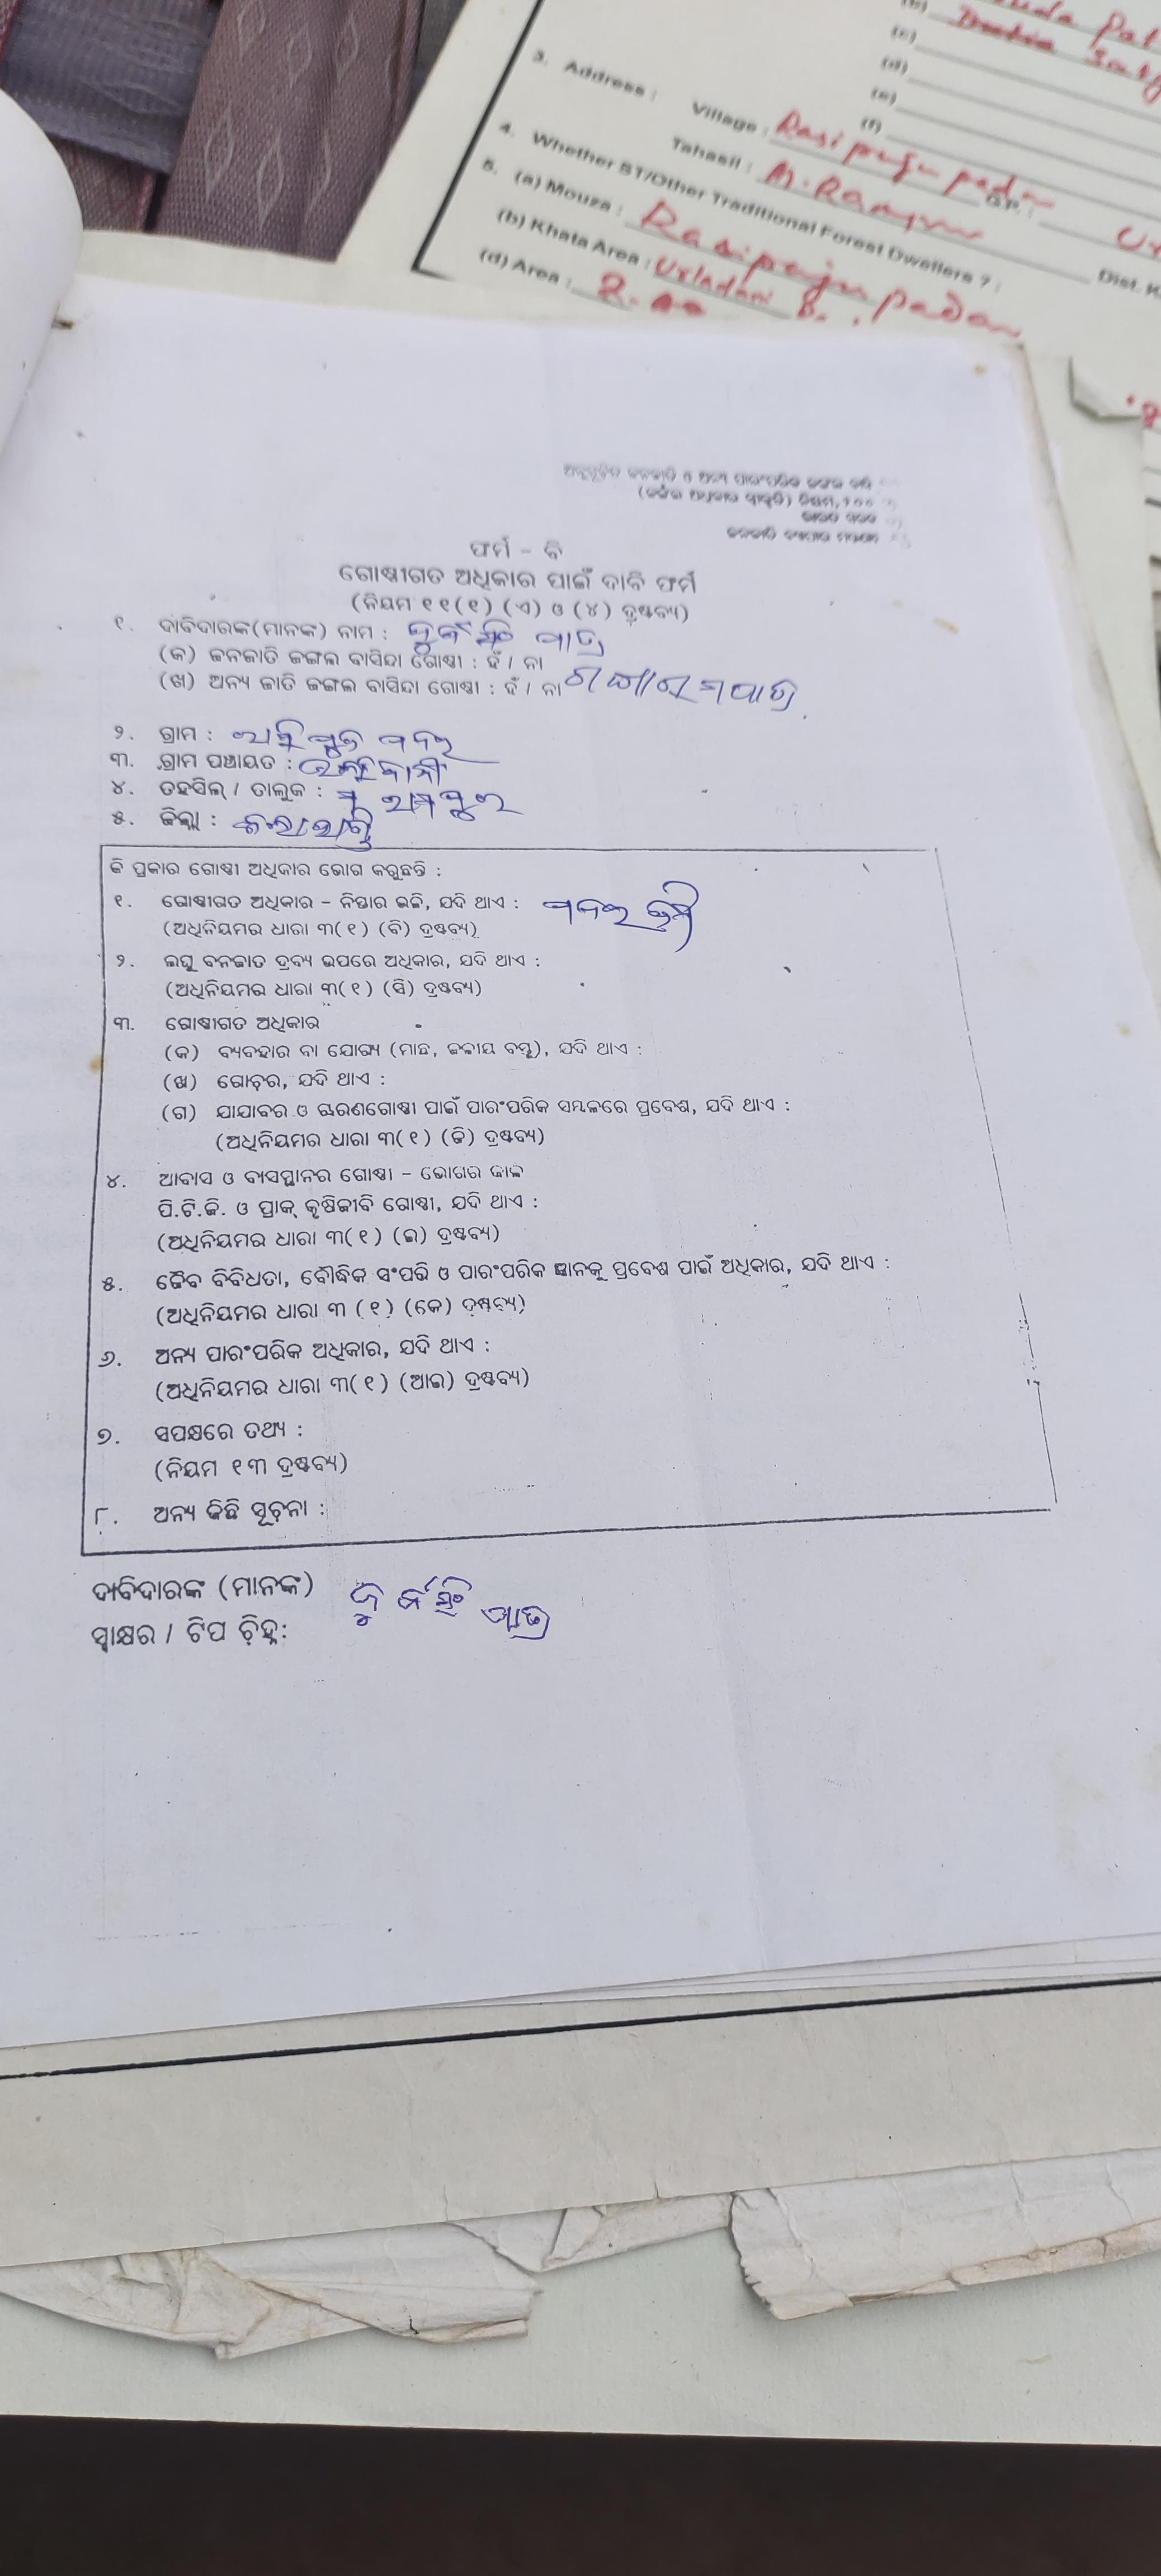 (b)
(c)
(d)
(e)
(f)
3. Address : Village : Rasipujupadar G.P. :
Tahasil : M. Rampur Dist. K
4. Whether ST/Other Traditional Forest Dwellers ? :
5. (a) Mouza : Rasipujupadar
(b) Khata Area : Urladani
(d) Area :
ଅନୁସୂଚିତ ଜନଜାତି ଓ ଅନ୍ୟ ପାରଂପରିକ ଜଙ୍ଗଲ
(ଜଙ୍ଗଲ ଅଧିକାର ସ୍ୱୀକୃତି) ନିୟମ, ୨୦୦
ଭାରତ ସରକାର
ଜନଜାତି ବ୍ୟାପାର ମନ୍ତ୍ରଣାଳୟ
ଫର୍ମ – ବି
ଗୋଷ୍ଠୀଗତ ଅଧିକାର ପାଇଁ ଦାବି ଫର୍ମ
(ନିୟମ ୧୧(୧) (ଏ) ଓ (୪) ଦ୍ରଷ୍ଟବ୍ୟ)
୧. ଦାବିଦାରଙ୍କ(ମାନଙ୍କ) ନାମ : ପାତ୍ର
(କ) ଜନଜାତି ଜଙ୍ଗଲ ବାସିନ୍ଦା ଗୋଷ୍ଠୀ : ହଁ / ନା
(ଖ) ଅନ୍ୟ ଜାତି ଜଙ୍ଗଲ ବାସିନ୍ଦା ଗୋଷ୍ଠୀ : ହଁ / ନା
୨. ଗ୍ରାମ :
୩. ଗ୍ରାମ ପଞ୍ଚାୟତ :
୪. ତହସିଲ୍ / ତାଲୁକ : ମ ରାମପୁର
୫. ଜିଲ୍ଲା : କଳାହାଣ୍ଡି
କି ପ୍ରକାର ଗୋଷ୍ଠୀ ଅଧିକାର ଭୋଗ କରୁଛନ୍ତି :
୧. ଗୋଷ୍ଠୀଗତ ଅଧିକାର – ନିସ୍ତାର ଭଳି, ଯଦି ଥାଏ :
(ଅଧିନିୟମର ଧାରା ୩(୧) (ବି) ଦ୍ରଷ୍ଟବ୍ୟ)
୨. ଲଘୁ ବନଜାତ ଦ୍ରବ୍ୟ ଉପରେ ଅଧିକାର, ଯଦି ଥାଏ :
(ଅଧିନିୟମର ଧାରା ୩(୧) (ସି) ଦ୍ରଷ୍ଟବ୍ୟ)
୩. ଗୋଷ୍ଠୀଗତ ଅଧିକାର
(କ) ବ୍ୟବହାର ବା ଯୋଗ୍ୟ (ମାଛ, ଜଳୀୟ ବସ୍ତୁ), ଯଦି ଥାଏ :
(ଖ) ଗୋଚ଼ର, ଯଦି ଥାଏ :
(ଗ) ଯାଯାବର ଓ ଚାରଣଗୋଷ୍ଠୀ ପାଇଁ ପାରଂପରିକ ସମ୍ବଳରେ ପ୍ରବେଶ, ଯଦି ଥାଏ :
(ଅଧିନିୟମର ଧାରା ୩(୧) (ଜି) ଦ୍ରଷ୍ଟବ୍ୟ)
୪. ଆବାସ ଓ ବାସସ୍ଥାନର ଗୋଷ୍ଠୀ – ଭୋଗର କାଳ
ପି.ଟି.ଜି. ଓ ପ୍ରାକ୍ କୃଷିଜୀବି ଗୋଷ୍ଠୀ, ଯଦି ଥାଏ :
(ଅଧିନିୟମର ଧାରା ୩(୧) (ଇ) ଦ୍ରଷ୍ଟବ୍ୟ)
୫. ଜୈବ ବିବିଧତା, ବୌଦ୍ଧିକ ସଂପତ୍ତି ଓ ପାରଂପରିକ ଜ୍ଞାନକୁ ପ୍ରବେଶ ପାଇଁ ଅଧିକାର, ଯଦି ଥାଏ :
(ଅଧିନିୟମର ଧାରା ୩ (୧) (କେ) ଦ୍ରଷ୍ଟବ୍ୟ)
୬. ଅନ୍ୟ ପାରଂପରିକ ଅଧିକାର, ଯଦି ଥାଏ :
(ଅଧିନିୟମର ଧାରା ୩(୧) (ଆଇ) ଦ୍ରଷ୍ଟବ୍ୟ)
୭. ସପକ୍ଷରେ ତଥ୍ୟ :
(ନିୟମ ୧୩ ଦ୍ରଷ୍ଟବ୍ୟ)
୮. ଅନ୍ୟ କିଛି ସୂଚ଼ନା :
ଦାବିଦାରଙ୍କ (ମାନଙ୍କ)
ସ୍ୱାକ୍ଷର / ଟିପ ଚ଼ିହ୍ନ: ପାତ୍ର